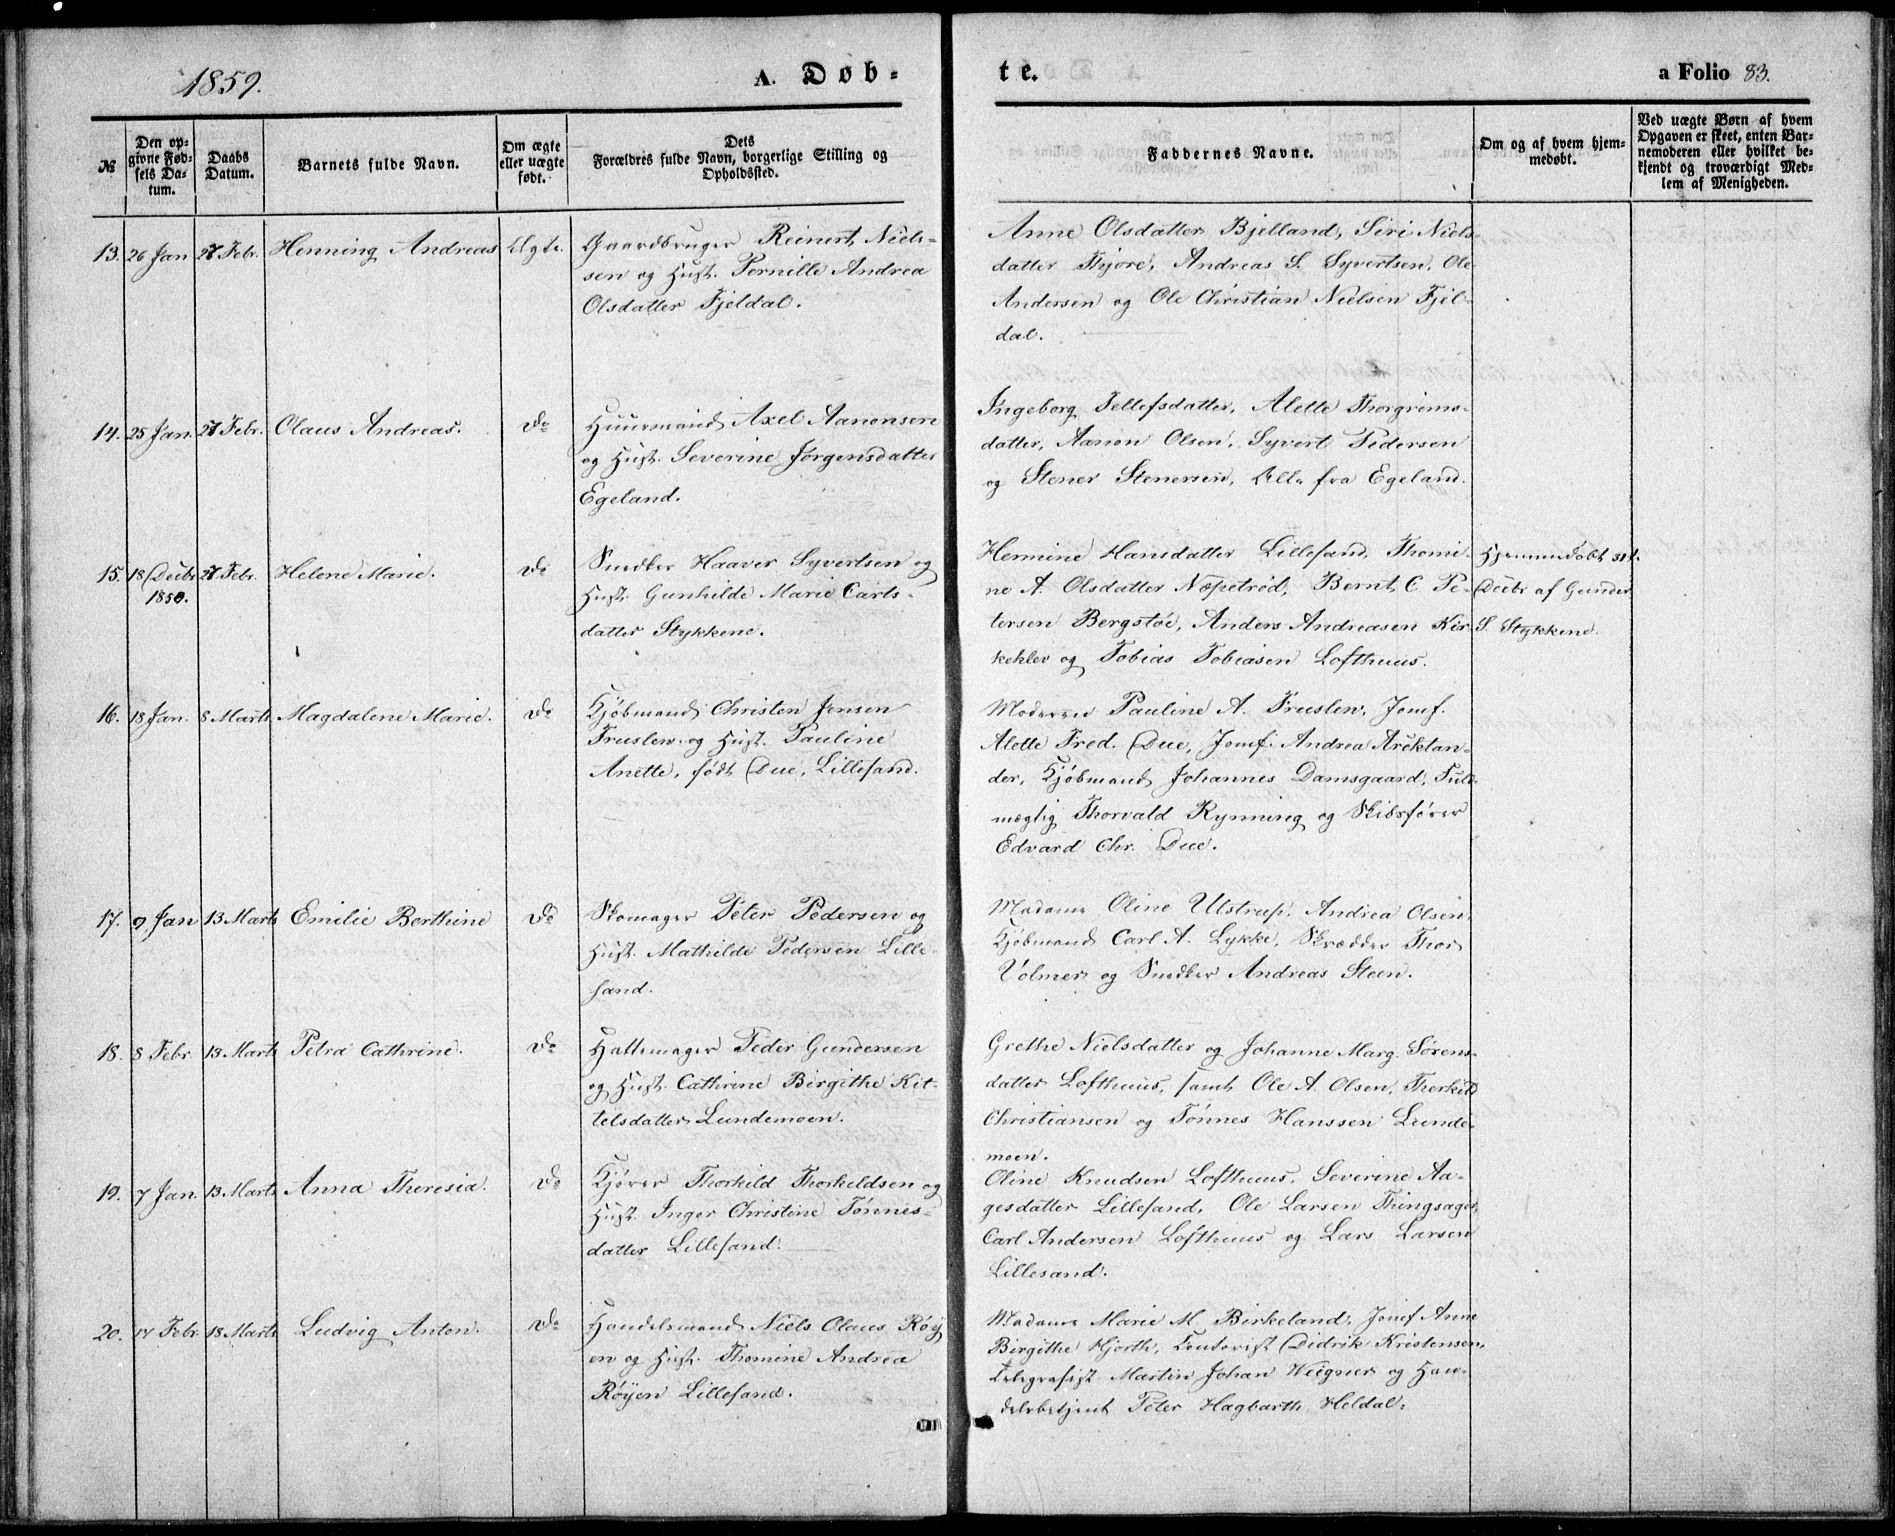 1859.
A. Døb-
te.
a Folio 83.
№
Den op-
givne Fød-
sels Da-
tum.
Daabs
Datum.
Barnets fulde Navn.
Om ægte
eller uægte
født.
Dets
Forældres fulde Navn, borgerlige Stilling og
Opholdssted.
Faddernes Navne.
Om og af hvem hjem-
medøbt.
Ved uægte Børn af hvem
Opgaven er skeet, enten Bar-
nemoderen eller hvilket be-
kjendt og troværdigt Med-
lem af Menigheden.
13. 26 Jan 27 Febr. Henning Andreas Ægte.
Gaardbruger Reinert Niels-
sen og Hust. Pernille Andrea
Olsdatter Fjeldal.
Anne Olsdatter Bjelland, Siri Niels-
datter Thjøre, Andreas S. Syvertsen, Ole
Andersen og Ole Christian Nielsen Fjel-
dal.
14. 25 Jan. 27 Febr. Olaus Andreas. Do
Huusmand Axel Aanonsen
og Hust. Severine Jørgensdatter
Egeland.
Ingeborg Tellefsdatter, Alette Thorgrims-
datter, Aanon Olsen, Syvert Pedersen
og Stener Stenersen, Alle fra Egeland.
15. 18 Decbr 27 Febr. Helene Marie. Do
1858.
Snedker Haaver Syvertsen og
Hust. Gunhilde Marie Carls-
datter Stykkene.
Hermine Hansdatter Lillesand, Thomi-
ne A. Olsdatter Næpetrød, Bernt C Pe-
tersen Bergstøe, Anders Andreasen Kir-
kehlev og Tobias Tobiasen Lofthuus.
Hjemmedøbt 31t.
Decbr af Gunder
S. Stykkene.
16. 18 Jan. 8 Marts Magdalene Marie. Do
Kjøbmand Christen Jensen
Fruslew og Hust. Pauline
Anette, født Due, Lillesand.
Moderen Pauline A. Fruslew, Jomf.
Alette Fred. Due, Jomf. Andrea Arcktan-
der, Kjøbmand Johannes Damsgaard, Fuld-
mægtig Thorvald Rynning og Skibsfører
Edvard Chr. Due.
17. 9 Jan 13 Marts Emilie Berthine Do
Skomager Peter Pedersen og
Hust. Mathilde Pedersen Lille-
sand.
Madame Oline Ulstrup, Andrea Olsen,
Kjøbmand Carl A. Lykke, Skrædder Thor
Volmer og Snedker Andreas Steen.
18. 8 Febr. 13 Marts Petra Cathrine. Do
Hattemager Peder Gundersen
og Hust. Cathrine Birgithe Kit-
telsdatter Lundemoen.
Grethe Nielsdatter og Johanne Marg. Sørens-
datter Lofthuus, samt Ole A. Olsen, Therkild
Christiansen og Tønnes Hanssen Lunde-
moen.
19. 7 Jan. 13 Marts Anna Theresia. Do
Kjører Thorkild Thorkeldsen og
Hust. Inger Christine Tønnes-
datter Lillesand.
Oline Knudsen Lofthuus, Severine Aa-
gesdatter Lillesand, Ole Larsen Thingsager,
Carl Andersen Lofthuus og Lars Larsen
Lillesand.
20. 14 Febr. 18 Marts Ludvig Anton. Do
Handelsmand Niels Olaus Røÿ
en og Hust. Thomine Andrea
Røÿen Lillesand.
Madame Marie M. Birkeland, Jomf Anne
Birgithe Hjorth, Contorist Didrik Kristensen,
Telegrafist Martin Johan Weigner og Han-
delsbetjent Peter Hagbarth Heldal.